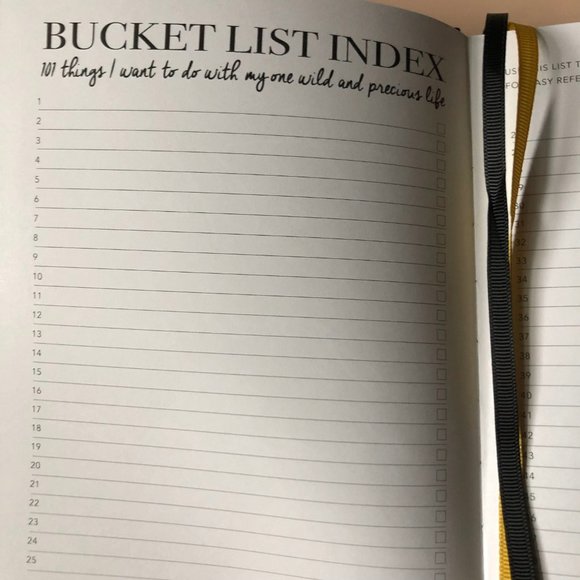 BUCKET LIST INDEX
101 things I want to do with my one wild and precious life
1
2
3
4
5
6
7
8
9
10
11
12
13
14
15
16
17
18
19
20
21
22
23
24
25
IS LIST
REFE
32
35
36
38
39
40
41
42
43
44
45